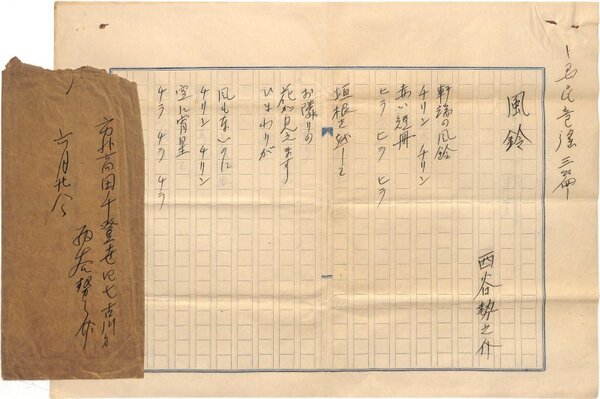 童謡三篇
風鈴
西谷勢之介
軒端の風鈴
チリン チリン
赤い短冊
ヒラ ヒラ ヒラ
垣根を越して
お隣りの
花が見えます
ひまわりが
風もないのに
チリン チリン
空に宵星
チラ チラ チラ
市外高田千登世四七古川方
西谷勢之介
六月廿